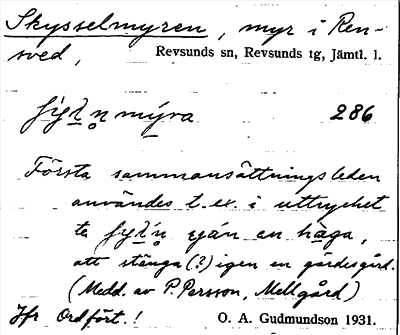 Skysselmyren, myr i Ren-
sved, Revsunds sn, Revsunds tg, Jämtl. l.
286
Första sammansättningsleden
användes t. ex. i uttrycket
en häga,
att stänga (?) igen en gärdesgård.
(Medd. av P. Persson, Mellgård)
Jfr Ordfört.! O. A. Gudmundson 1931.